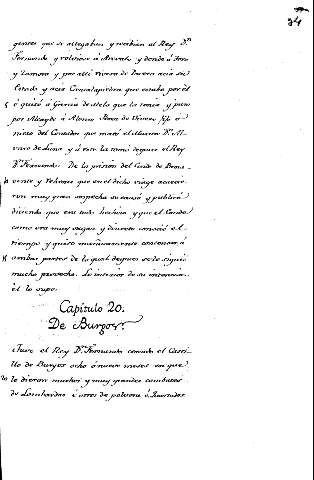 34
gentes que se allegaban y recibian al Rey Dn
Fernando y volviose à Arevalo y dende à Toro
y Zamora y por alli rivera de Duero acia su
Estado y acia Cantalapiedra que estaba por él
ó quitó á Garcia de Melo que la tenia y puso
por Alcayde à Alonso Perez de Vivero fijo ó
nieto del Contador que mató el Maestre Dn Al-
varo de Luna y á este la tomó despues el Rey
Dn Fernando. De la prision del Conde de Bena-
vente y rehenes que en el dicho viage acaecie-
ron muy gran sospecha se causó y publicó
diciendo que era trato hechura y que el Conde
como era muy sagaz y discreto conoció el
tiempo y quiso mañosamente contentar á
ambas partes de lo qual despues se le siguió
mucho provecho. Lo interior de su intencion
el lo supo.
Capitulo 20.
De Burgos.
Tuvo el Rey Dn Fernando cercado el Casti-
llo de Burgos ocho ó nueve meses en que
le dieron muchos y muy grandes combates
de Lombardas é otros de polvora é